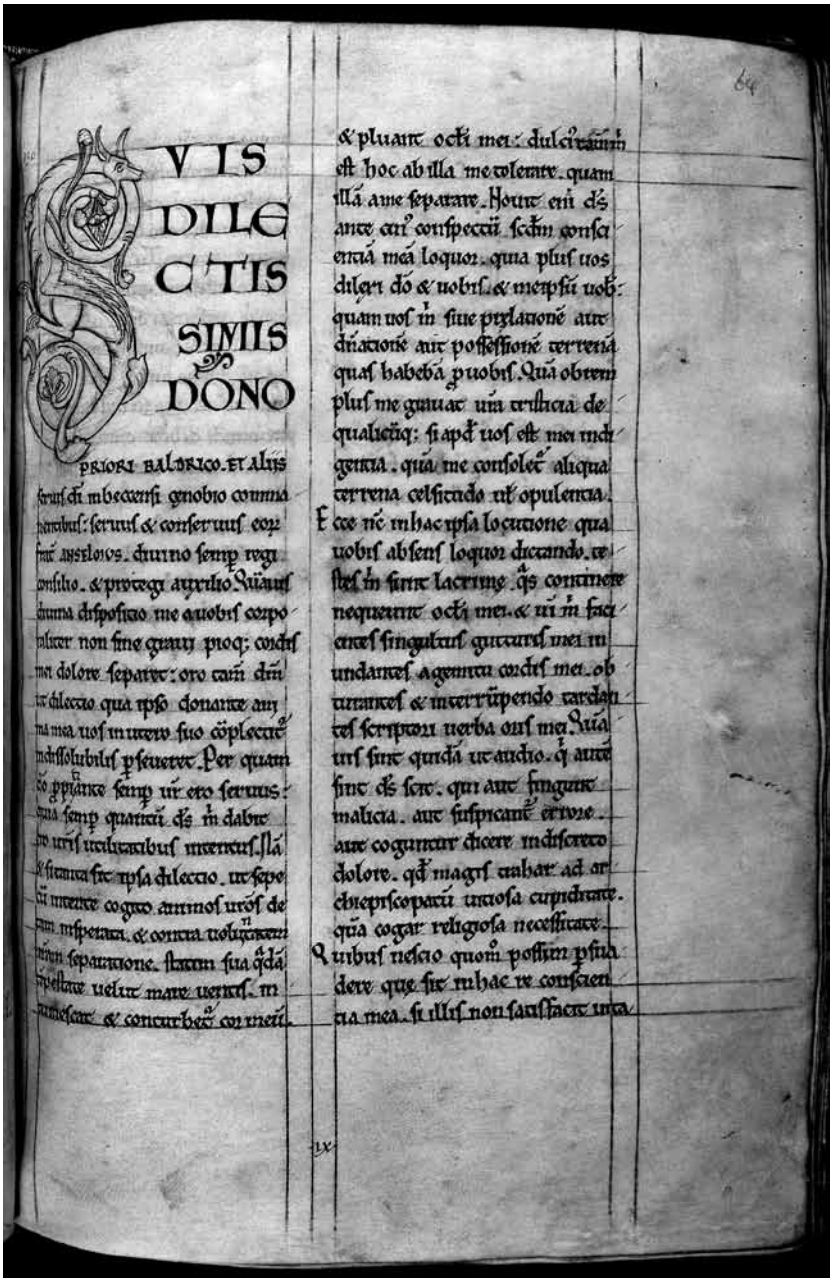 SVIS
DILE
CTIS
SIMIS
DŌNO
PRIORI BALDRICO. ET ALIIS
seruis dī in beccensi cenobio comma
nentibus: seruus & conseruus eoꝝ
frat̄ ANSELMVS. diuino semꝑ regi
consilio. & protegi auxilio. Quāuis
diuina dispositio me a uobis corpo
raliter non sine graui pioq; cordis
mei dolore separet: oro tam̄ dm̄
ut dilectio qua ipso donante ani
ma mea uos in utero suo cōplectit᷑
indissolubilis ꝑseueret. Per quam
do ꝓpitiante semꝑ ur̄ ero seruus:
quia semꝑ quantū ds̄ m̄ dabit
pro ur̄is utilitatibus intentus. Nā
& si tanta sit ipsa dilectio. ut sepe
cū intente cogito animos ur̄os de
tam insperata. & contra uoluntatem
separatione. statim sua q̄dā
tēpestate uelut mare uentis. in
tumescat & conturbet᷑ cor meū.
& pluant oc̄li mei: dulci᷒ tam̄ m̄
est hoc ab illa me tolerare. quam
illā a me separare. Nouit eni̅ ds̄
ante cui᷒ conspectū scd̄m consci
entiā meā loquor. quia plus uos
dilexi dō & uobis. & meipsū uob̄:
quam uos m̄ siue prelationē aut
dn̄ationē aut possessionē terrenā
quas habebā ꝓ uobis. Quā obrem
plus me grauat ur̄a tristicia de
qualicūq;: si apd̄ uos est mei indi
gentia. quā me consolet᷑ aliqua
terrena celsitudo uł opulentia.
Ecce nc̄ in hac ipsa locutione qua
uobis absens loquor dictando. te
stes m̄ sunt lacrime q̄s continere
nequeunt oc̄li mei. & uī m̄ faci
entes singultus gutturis mei in
undantes a gemitu cordis mei. ob
turantes & interrūpendo tardan
tes scriptori uerba oris mei. Quā
uis sint quidā ut audio. q̄ autē
sint ds̄ scit. qui aut fingunt
malicia. aut suspicant᷑ errore.
aut coguntur dicere indiscreto
dolore. qd̄ magis trahar ad ar
chiepiscopatū uitiosa cupiditate.
quā cogar religiosa necessitate.
Quibus nescio quom̊ possim ꝑsua
dere quę sit in hac re conscien
tia mea. si illis non satisfacit uita
ix